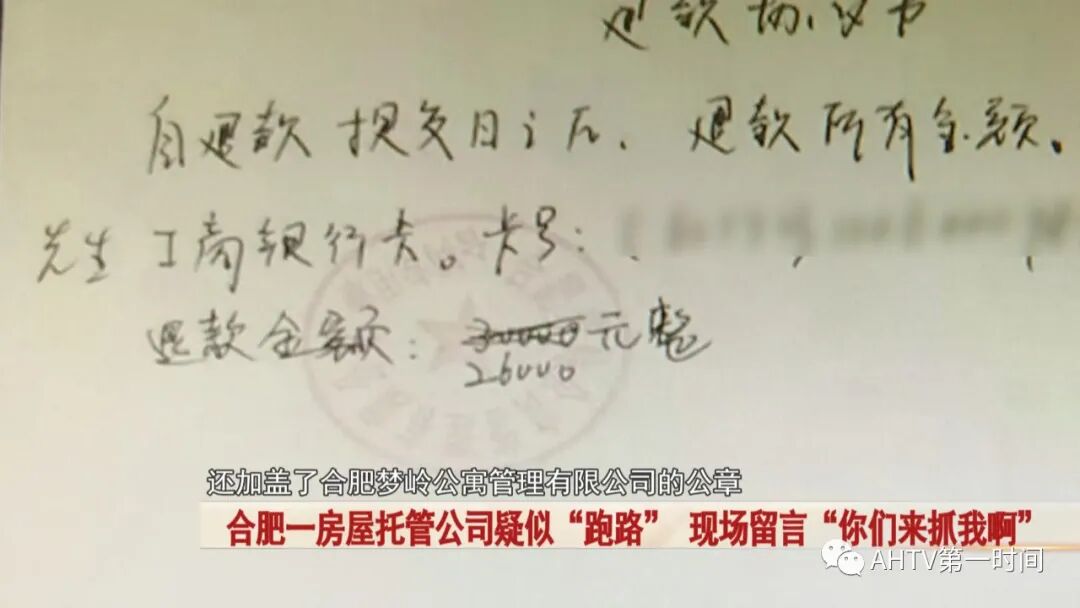 退款协议书
自退款提交日之后、退款所有金额。
先生工商银行卡。卡号:
退款金额: 30000元整
26000
还加盖了合肥梦岭公寓管理有限公司的公章
合肥一房屋托管公司疑似“跑路” 现场留言“你们来抓我啊”
AHTV第一时间